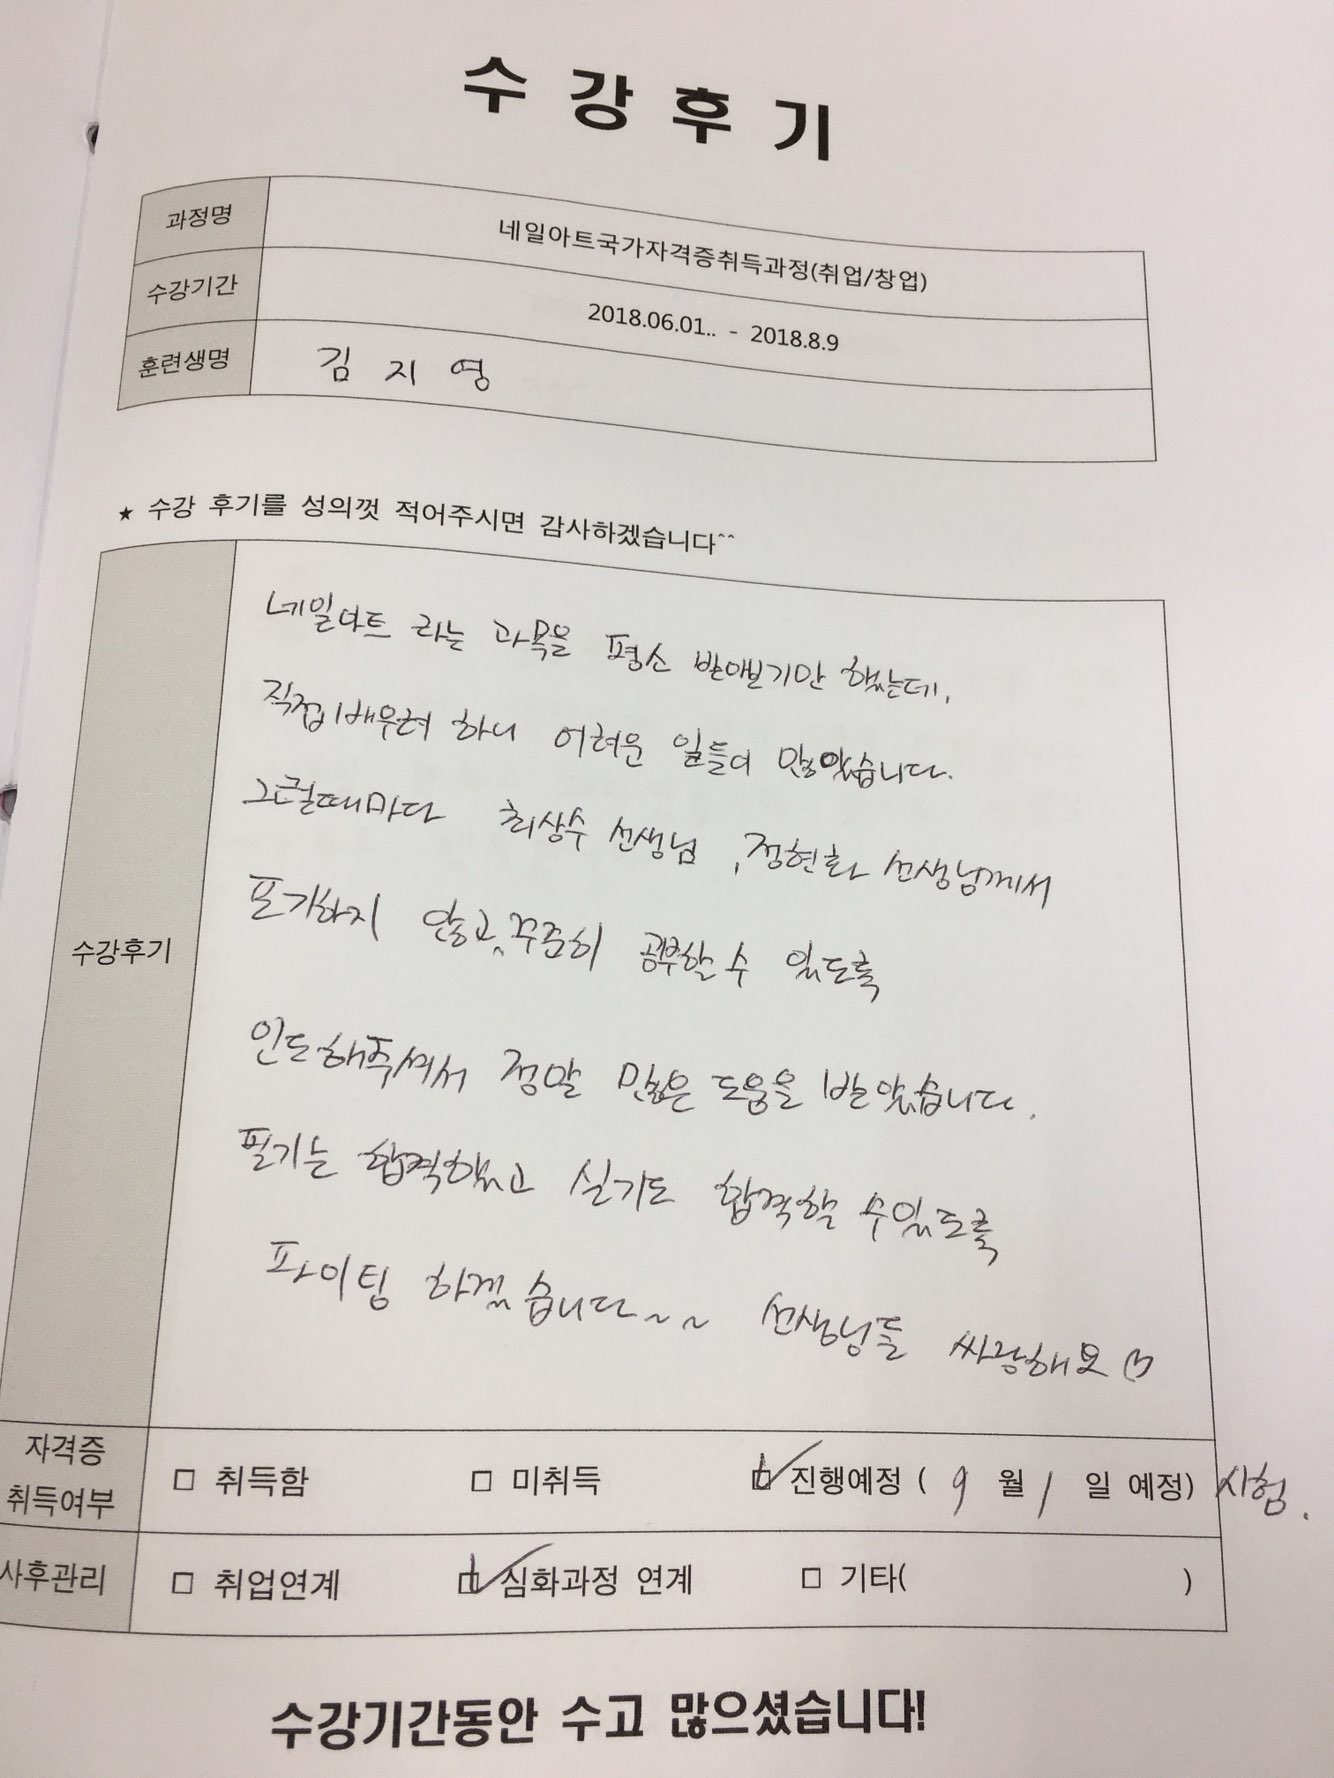 수강후기
과정명 네일아트국가자격증취득과정(취업/창업)
수강기간 2018.06.01.. - 2018.8.9
훈련생명 김지영
★ 수강 후기를 성의껏 적어주시면 감사하겠습니다^^
네일아트 라는 과목을 평소 받아보기만 했는데,
직접 배우려 하니 어려운 일들이 많았습니다.
그럴때마다 최상수 선생님, 정현화 선생님께서
수강후기
포기하지 않고, 꾸준히 공부할 수 있도록
인도해주셔서 정말 많은 도움을 받았습니다.
필기는 합격했고 실기도 합격할 수있도록
파이팅 하겠습니다~~ 선생님들 싸랑해요♡
자격증
취득여부
□ 취득함 □ 미취득 ☑ 진행예정 ( 9 월 1 일 예정) 시험.
사후관리 □ 취업연계 ☑ 심화과정 연계 □ 기타( )
수강기간동안 수고 많으셨습니다!